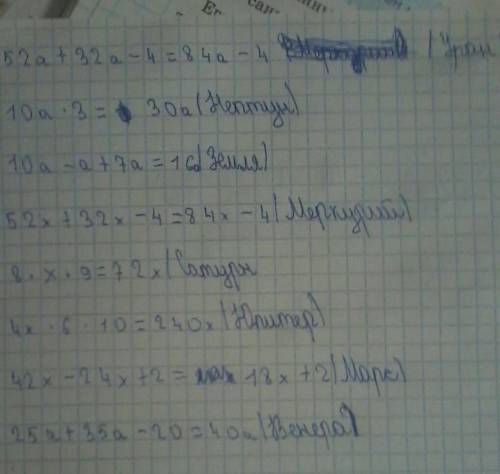 52a + 32a - 4 = 84a - 4 (Уран
10a · 3 = 30a (Нептун)
10a - a + 7a = 16a (Земля)
52x + 32x - 4 = 84x - 4 (Меркурий)
8 · x · 9 = 72x (Сатурн
4x · 6 · 10 = 240x (Юпитер)
42x - 24x + 2 = 18x + 2 (Марс)
25a + 35a - 20 = 40a (Венера)